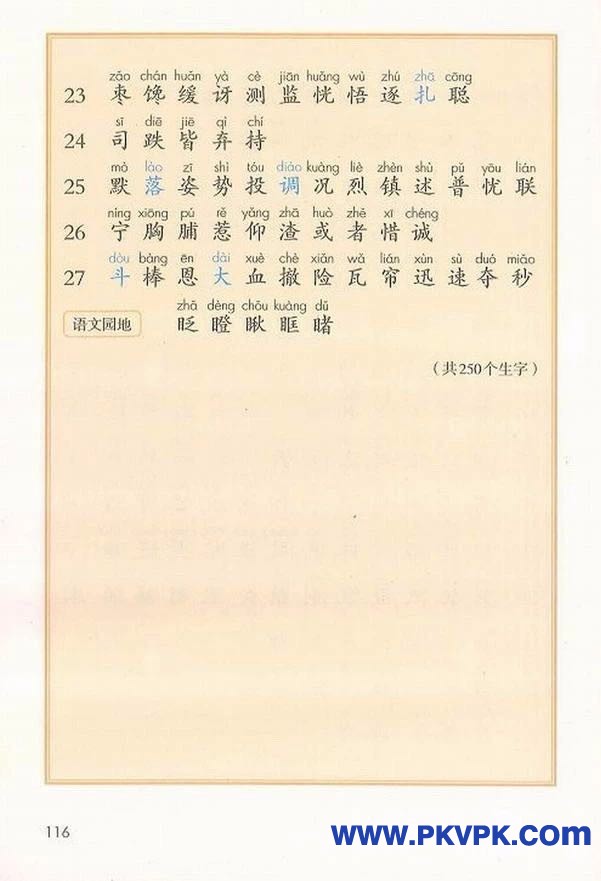 zǎo chán huǎn yà cè jiān huǎng wù zhú zhā cōng
23 枣 馋 缓 讶 测 监 恍 悟 逐 扎 聪
sī diē jiē qì chí
24 司 跌 皆 弃 持
mò lào zī shì tóu diào kuàng liè zhèn shù pǔ yōu lián
25 默 落 姿 势 投 调 况 烈 镇 述 普 忧 联
níng xiōng pú rě yǎng zhā huò zhě xī chéng
26 宁 胸 脯 惹 仰 渣 或 者 惜 诚
dòu bàng ēn dài xuè chè xiǎn wǎ lián xùn sù duó miǎo
27 斗 棒 恩 大 血 撤 险 瓦 帘 迅 速 夺 秒
zhǎ dèng chǒu kuàng dǔ
语文园地 眨 瞪 瞅 眶 睹
（共250个生字）
116
www.PKVPK.com